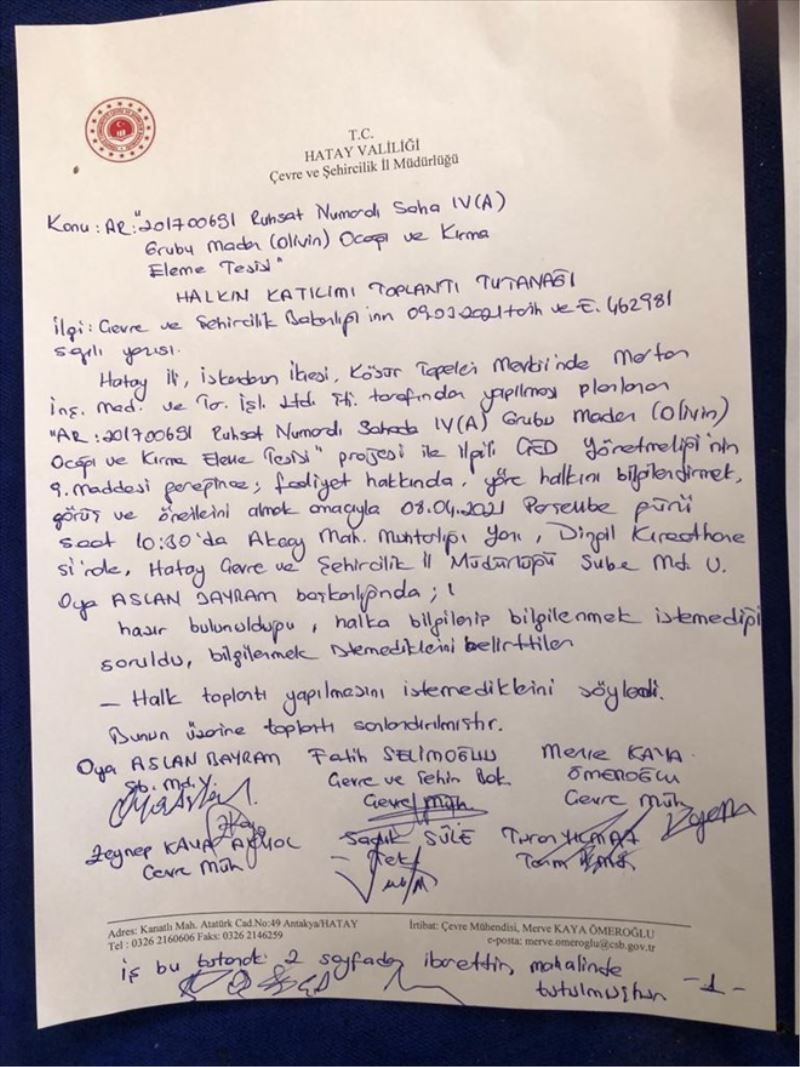 T.C.
HATAY VALİLİĞİ
Çevre ve Şehircilik İl Müdürlüğü
Konu : AR:"201700691 Ruhsat Numaralı Saha IV(A)
Grubu Maden (Olivin) Ocağı ve Kırma
Eleme Tesisi"
HALKIN KATILIMI TOPLANTI TUTANAĞI
İlgi : Çevre ve Şehircilik Bakanlığı'nın 09.03.2021 tarih ve E. 462981
sayılı yazısı.
Hatay İli, İskenderun İlçesi, Kösür Tepeleri Mevkii'nde
İnş. Mad. ve Tar. İşl. Ltd. Şti. tarafından yapılması planlanan
"AR : 201700691 Ruhsat Numaralı Sahada IV(A) Grubu Maden (Olivin)
Ocağı ve Kırma Eleme Tesisi" projesi ile ilgili ÇED Yönetmeliği'nin
9. maddesi gereğince; faaliyet hakkında, yöre halkını bilgilendirmek,
görüş ve önerilerini almak amacıyla 08.04.2021 Perşembe günü
saat 10:30'da Akçay Mah. Muhtarlığı Yanı, Kıraathane
si'nde, Hatay Çevre ve Şehircilik İl Müdürlüğü Şube Md. V.
Oya ASLAN BAYRAM başkanlığında ;
hazır bulunulduğu, halka bilgilenip bilgilenmek istemediği
soruldu, bilgilenmek istemediklerini belirttiler
- Halk toplantı yapılmasını istemediklerini söyledi.
Bunun üzerine toplantı sonlandırılmıştır.
Oya ASLAN BAYRAM Fatih SELİMOĞLU Merve KAYA
Şb. Md. V. Çevre ve Şehir Bak. ÖMEROĞLU
Çevre Müh. Çevre Müh
Zeynep KAYA SÜLE Turan YILMAZ
Çevre Müh
Adres: Kanatlı Mah. Atatürk Cad.No:49 Antakya/HATAY İrtibat: Çevre Mühendisi, Merve KAYA ÖMEROĞLU
Tel : 0326 2160606 Faks: 0326 2146259 e-posta: merve.omeroglu@csb.gov.tr
iş bu tutanak 2 sayfadan ibarettir, mahalinde
tutulmuştur -1-